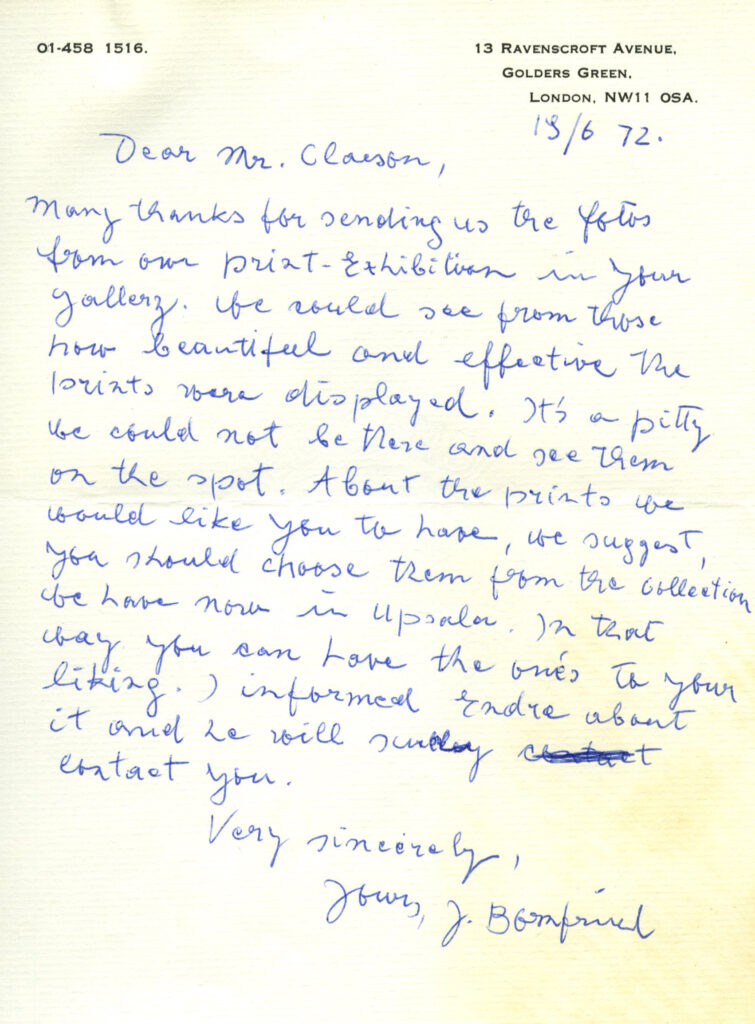 01-458 1516.
13 RAVENSCROFT AVENUE,
GOLDERS GREEN,
LONDON, NW11 OSA.
19/6 72.
Dear Mr. Claeson,
Many thanks for sending us the fotos
from our print-Exhibition in your
gallery. We could see from those
how beautiful and effective the
prints were displayed. It's a pitty
we could not be there and see them
on the spot. About the prints we
would like you to have, we suggest,
you should choose them from the collection
we have now in Upsala. In that
way you can have the one's to your
liking. I informed Endre about
it and he will contact
contact you.
Very sincerely,
Yours, J.